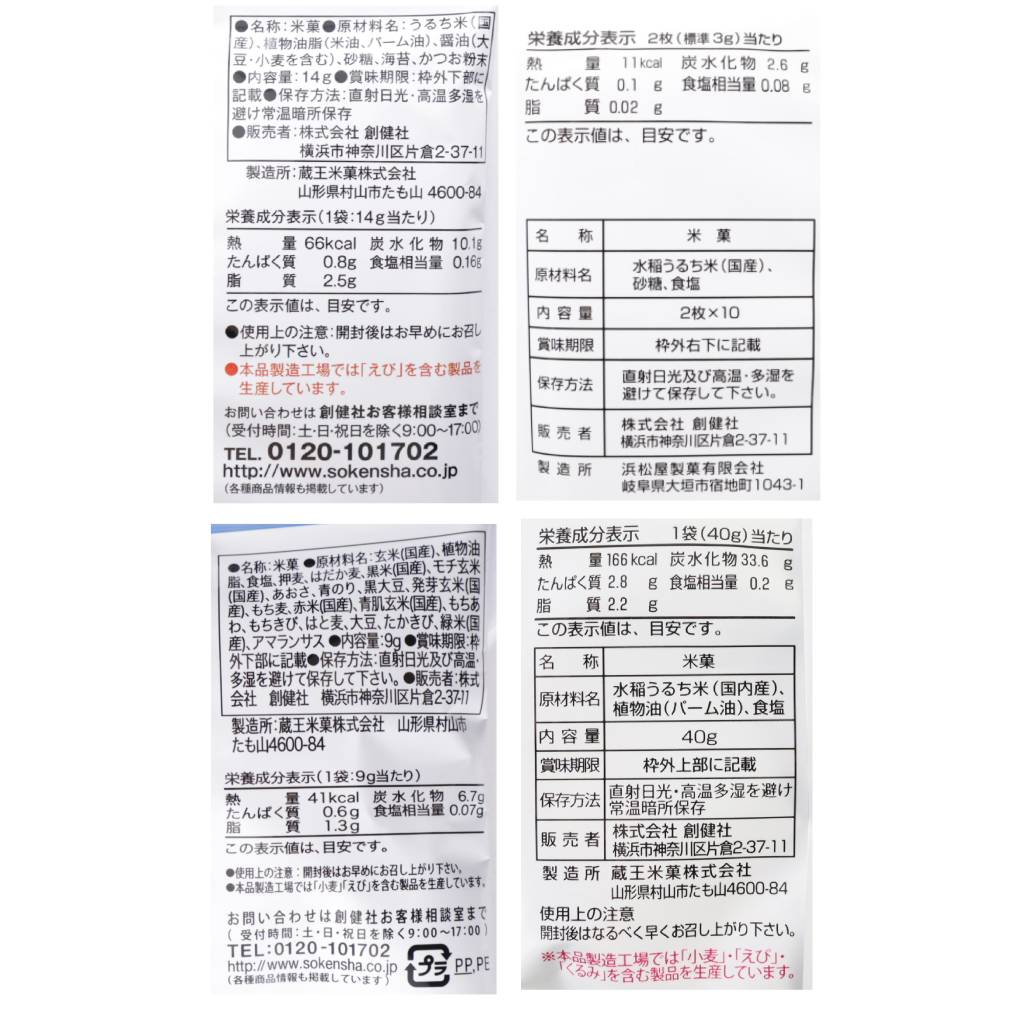 ●名称:米菓●原材料名:うるち米(国
産)、植物油脂(米油、パーム油)、醤油(大
豆・小麦を含む)、砂糖、海苔、かつお粉末
●内容量:14g●賞味期限:枠外下部に
記載●保存方法:直射日光・高温多湿を
避け常温暗所保存
●販売者:株式会社 創健社
横浜市神奈川区片倉2-37-11
製造所:蔵王米菓株式会社
山形県村山市たも山 4600-84
栄養成分表示(1袋:14g当たり)
熱 量 66kcal 炭水化物 10.1g
たんぱく質 0.8g 食塩相当量 0.16g
脂 質 2.5g
この表示値は、目安です。
●使用上の注意:開封後はお早めにお召し
上がり下さい。
●本品製造工場では「えび」を含む製品を
生産しています。
お問い合わせは 創健社お客様相談室まで
(受付時間:土・日・祝日を除く9:00〜17:00)
TEL. 0120-101702
http://www.sokensha.co.jp
(各種商品情報も掲載しています)
栄養成分表示 2枚(標準3g)当たり
熱 量 11kcal 炭水化物 2.6 g
たんぱく質 0.1 g 食塩相当量 0.08 g
脂 質 0.02 g
この表示値は、目安です。
名 称 米 菓
原材料名 水稲うるち米(国産)、
砂糖、食塩
内容量 2枚×10
賞味期限 枠外右下に記載
保存方法 直射日光及び高温・多湿を
避けて保存して下さい。
販売者 株式会社 創健社
横浜市神奈川区片倉2-37-11
製造所 浜松屋製菓有限会社
岐阜県大垣市宿地町1043-1
●名称:米菓 ●原材料名:玄米(国産)、植物油
脂、食塩、押麦、はだか麦、黒米(国産)、モチ玄米
(国産)、あおさ、青のり、黒大豆、発芽玄米(国
産)、もち麦、赤米(国産)、青肌玄米(国産)、もちあ
わ、もちきび、はと麦、大豆、たかきび、緑米(国
産)、アマランサス ●内容量:9g●賞味期限:枠
外下部に記載●保存方法:直射日光及び高温・
多湿を避けて保存して下さい。●販売者:株式
会社 創健社 横浜市神奈川区片倉2-37-11
製造所:蔵王米菓株式会社 山形県村山市
たも山4600-84
栄養成分表示(1袋:9g当たり)
熱 量 41kcal 炭水化物 6.7g
たんぱく質 0.6g 食塩相当量 0.07g
脂 質 1.3g
この表示値は、目安です。
●使用上の注意: 開封後はお早めにお召し上がり下さい。
●本品製造工場では「小麦」「えび」を含む製品を生産しています。
お問い合わせは創健社お客様相談室まで
(受付時間:土・日・祝日を除く9:00〜17:00)
TEL:0120-101702
http://www.sokensha.co.jp
(各種商品情報も掲載しています)
プラ PP,PE
栄養成分表示 1袋(40g)当たり
熱 量 166kcal 炭水化物 33.6 g
たんぱく質 2.8 g 食塩相当量 0.2 g
脂 質 2.2 g
この表示値は、目安です。
名 称 米菓
原材料名 水稲うるち米(国内産)、
植物油(パーム油)、食塩
内容量 40g
賞味期限 枠外上部に記載
保存方法 直射日光・高温多湿を避け
常温暗所保存
販売者 株式会社 創健社
横浜市神奈川区片倉2-37-11
製造所 蔵王米菓株式会社
山形県村山市たも山4600-84
使用上の注意
開封後はなるべく早くお召し上がり下さい。
※本品製造工場では「小麦」・「えび」・
「くるみ」を含む製品を生産しています。